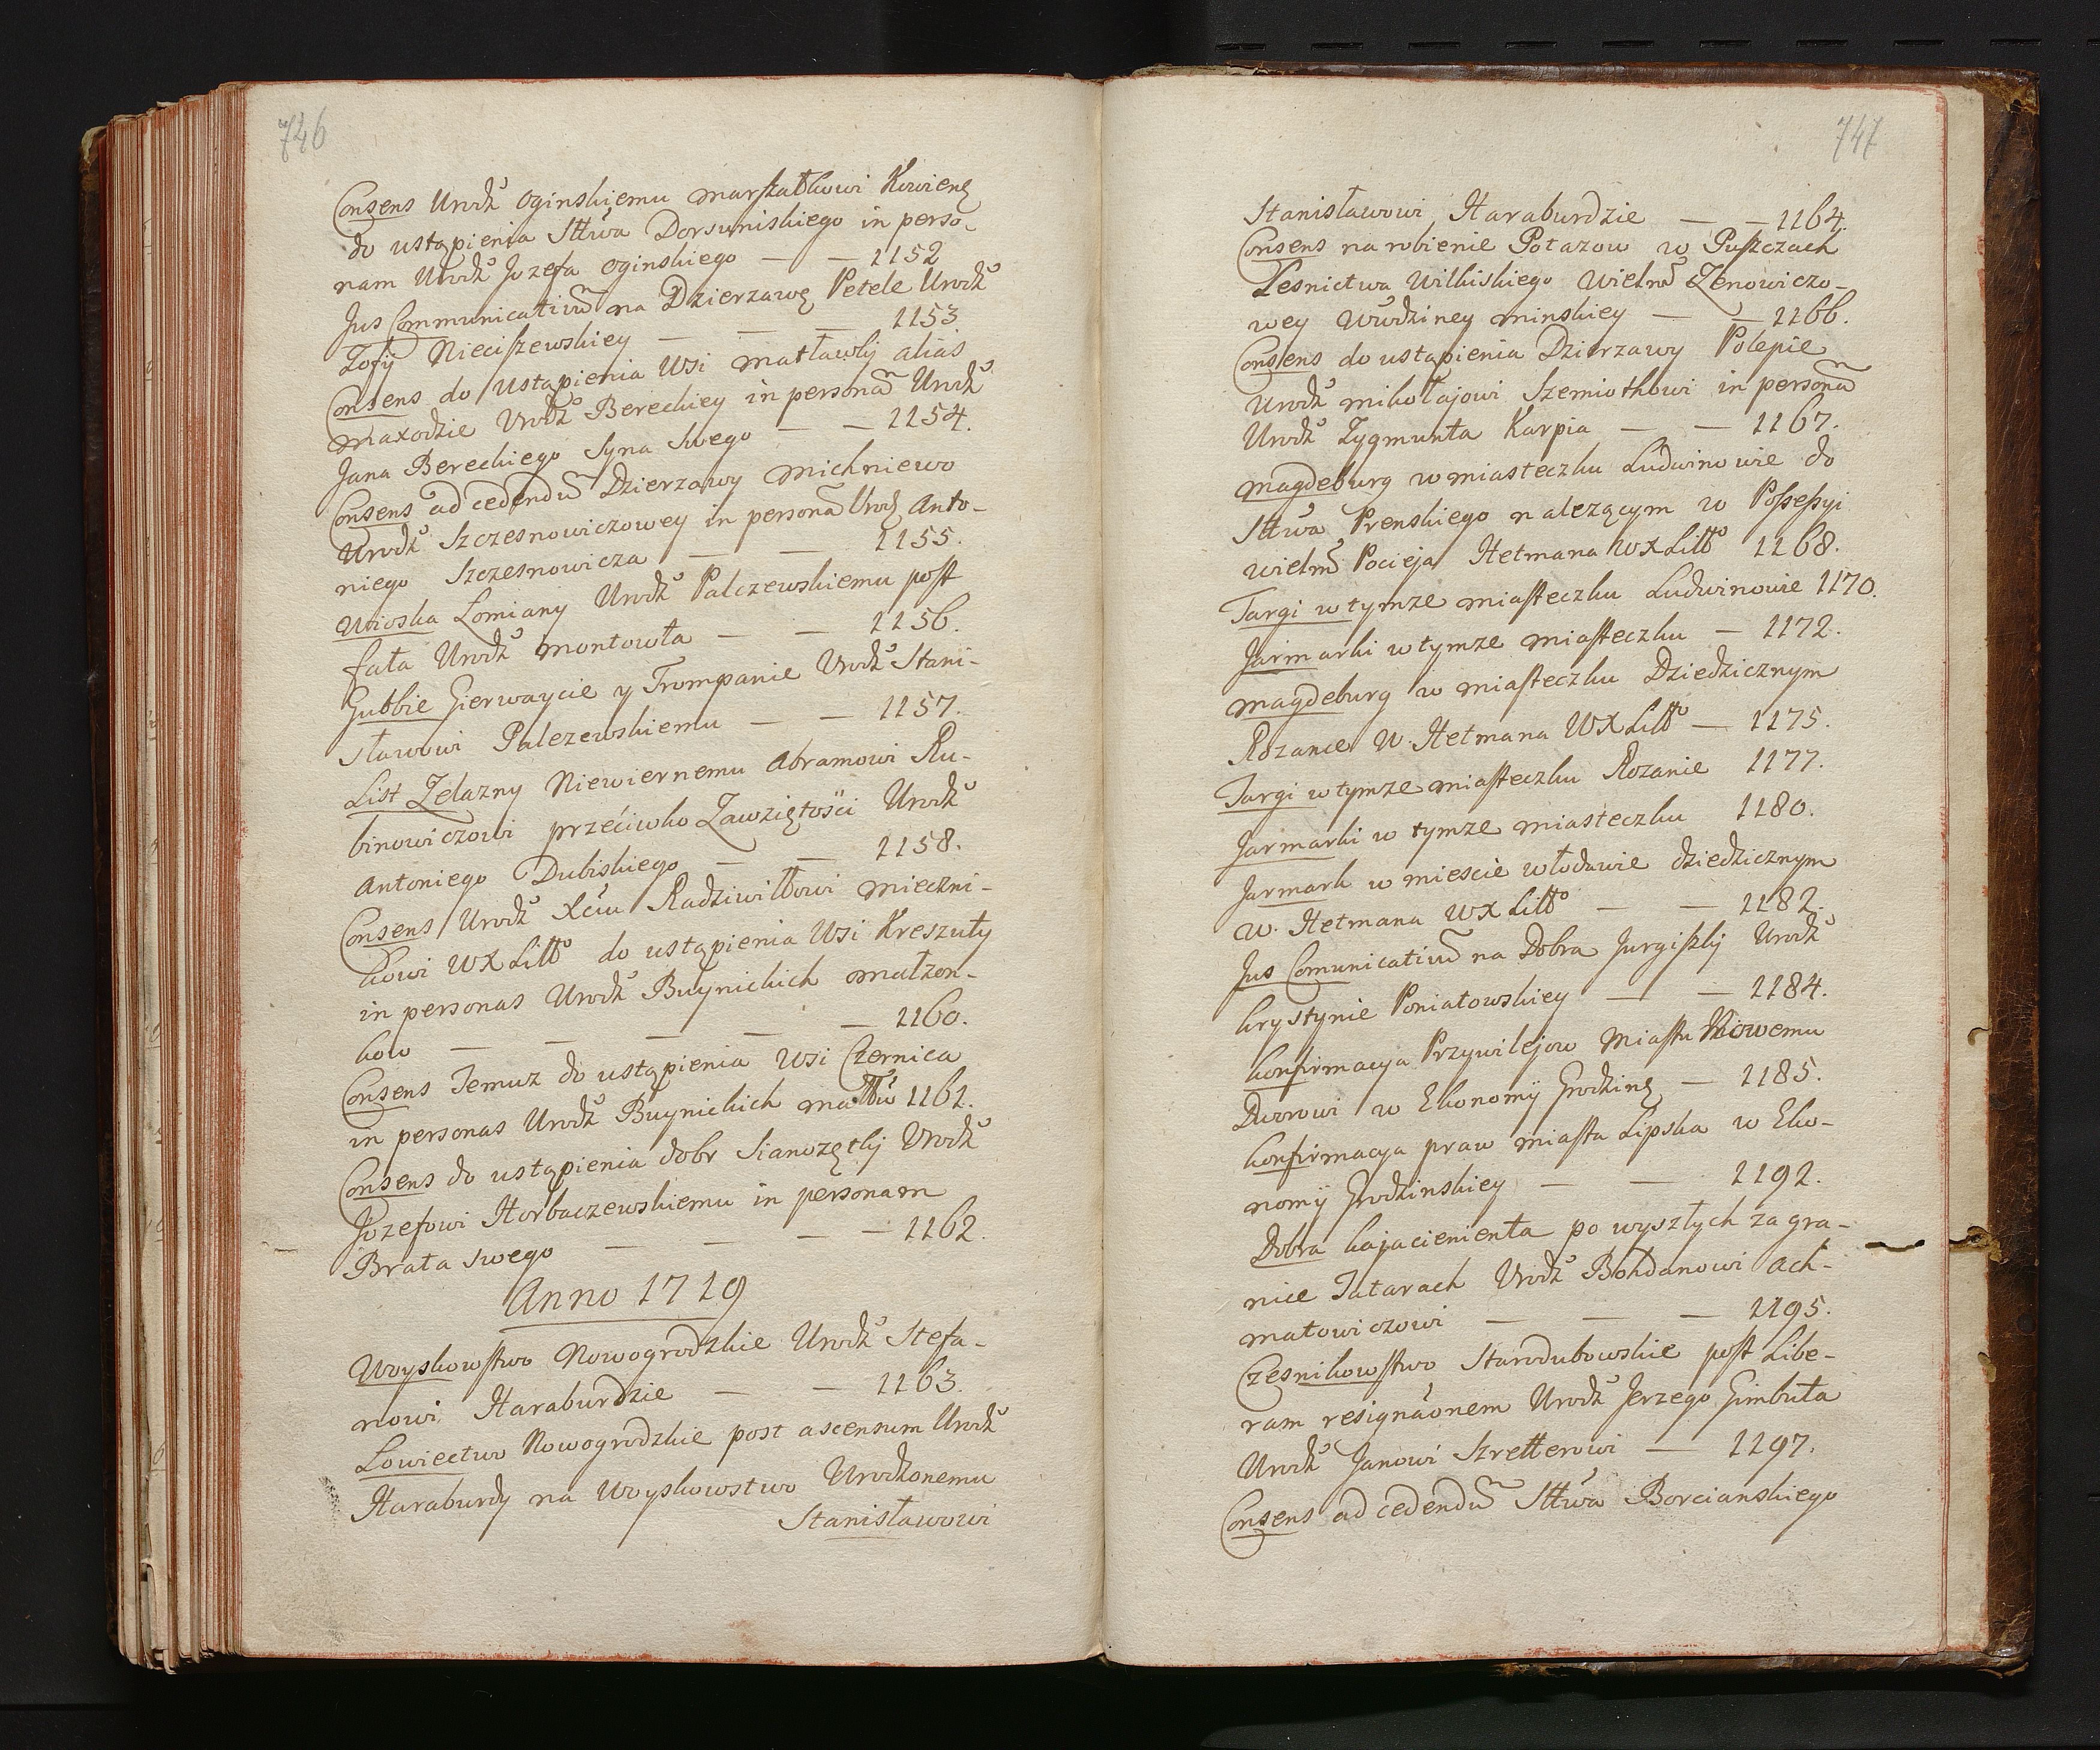 746
Consens Urodz Oginskiemu marszałkowi Kowieng
do ustąpienia Sttwa Dorsuniskiego in perso-
nam Urodz Jozefa Oginskiego — — 1152
Jus Communicativu na Dzierzawę Petele Urodz
Zofij Nieciszewskiey — — — 1153
Consens do ustąpienia Wsi matławki alias
maxodzie Urodz Bereckiey in persona Urodz
Jana Bereckiego Syna Swego — — 1154.
Consens ad cedendu Dzierzawy michniewo
Urodz Szczesnowiczowey in persona Urodz Anto-
niego Szczesnowicza — — 1155.
Wioska Lomiany Urodz Palczewskiemu post
fata Urodz montowta — — 1156.
Gubbie Gierwaycie y Trompanie Urodz Stani-
sławowi Palczewskiemu — — 1157.
List Zelazny Niewiernemu Abramowi Ru-
binowiczowi przeciwko Zawziętości Urodz
Antoniego Dubiskiego — — 1158.
Consens Urodz Xciu Radziwiłłowi mieczni-
kowi WX Litt do ustąpienia Wsi Kreszuty
in personas Urodz Buynickich małżon-
kow — — — — — 1160.
Consens Temuz do ustąpienia Wsi Czernica
in personas Urodz Buynickich małłw 1161.
Consens do ustąpienia dobr Sianozętkj Urodz
Jozefowi Horbaczewskiemu in personam
Brata swego — — — — 1162.
Anno 1719
Woyskowstwo Nowogrodzkie Urodz Stefa-
nowi Haraburdzie — — 1163.
Lowiectwo Nowogrodzkie post ascensum Urodz
Haraburdy na Woyskowstwo Urodzonemu
Stanisławowi
747
Stanisławowi Haraburdzie — — 1164.
Consens na robienie Potazow w Puszczach
Lesnictwa Wilkiskiego Wielm Zenowiczo-
wey Wwdziney minskiey — — 1166.
Consens do ustąpienia Dzierzawy Polepie
Urodz mikołajowi Szemiotkowi in persona
Urodz Zygmunta Karpia — — 1167.
magdeburg w miasteczku Ludwinowie do
Sttwa Prenskiego nalezącym w Possessyi
wielm Pocieja Hetmana WX Litt 1168.
Targi w tymze miasteczku Ludwinowie 1170.
Jarmarki w tymze miasteczku — 1172.
magdeburg w miasteczku Dziedzicznym
Rozance W. Hetmana WX Litt — 1175.
Targi w tymze miasteczku Rozanie 1177.
Jarmarki w tymze miasteczku 1180.
Jarmark w miescie włodawie dziedzicznym
W. Hetmana WX Litt — — 1182.
Jus Comunicativu na Dobra Jurgiszkj Urodz
krystynie Poniatowskiey — — 1184.
konfirmacya Przywilejow Miastu Nowemu
Dworowi w Ekonomij Grodzing — 1185.
konfirmacya praw miasta Lipska w Eko-
nomij Grodzinskiey — — 1192.
Dobra kajacienienta po wyszłych za gra-
nice Tatarach Urodz Bohdanowi Ach-
matowiczowi — — — 1195.
Czesnikowstwo Starodubowskie post Libe-
ram resignaonem Urodz Jerzego Gimbuta
Urodz Janowi Szretterowi — 1197.
Consens ad cedendu Sttwa Borcianskiego